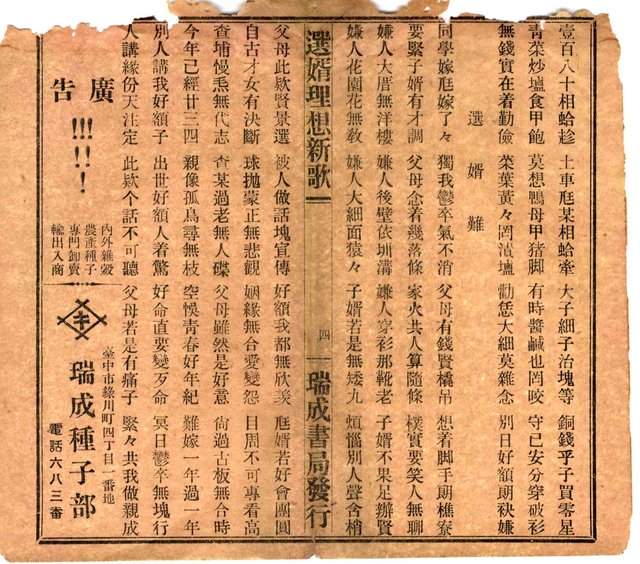 壹百八十相蛤趁 土車尫某相蛤牽 大子細子治塊等 銅錢乎子買零星
青菜炒塩食甲飽 莫想鴨母甲猪脚 有時醬鹹也罔咬 守己安分穿破衫
無錢實在着勤儉 菜葉黃々罔漬塩 勸恁大細莫雜念 別日好額朗袂嫌
選婿難
同學嫁尫嫁了々 獨我鬱卒氣不消 父母有錢賢橋吊 想着脚手朗樵寮
要緊子婿有才調 父母念着幾落條 家火共人算隨條 樸實要笑人無聊
嫌人大厝無洋樓 嫌人後壁依圳溝 嫌人穿衫那靴老 子婿不果足辦賢
嫌人花園花無教 嫌人大細面猿々 子婿若是無矮九 煩惱別人聲含梢
選婿理想新歌 四 瑞成書局發行
父母此欵賢景選 被人做話塊宣傳 好額我都無欣羨 尫婿若好會團圓
自古才女有決斷 球拋蒙正無悲觀 姻緣無合愛變怨 目周不可專看高
查埔慢炁無代志 查某過老無人磔 父母雖然是好意 尙過古板無合時
今年己經廿三四 親像孤鳥尋無枝 空悞青春好年紀 難嫁一年過一年
別人講我好額子 出世好額人着驚 好命直要變歹命 冥日鬱卒無塊行
人講緣份天注定 此欵个話不可聽 父母若是有痛子 緊々共我做親成
廣告!!!!!!
內外雜穀
農產種子
專門卸賣
輸出入商
キ
臺中市綠川町四丁目一番地
瑞成種子部
電話六八三番